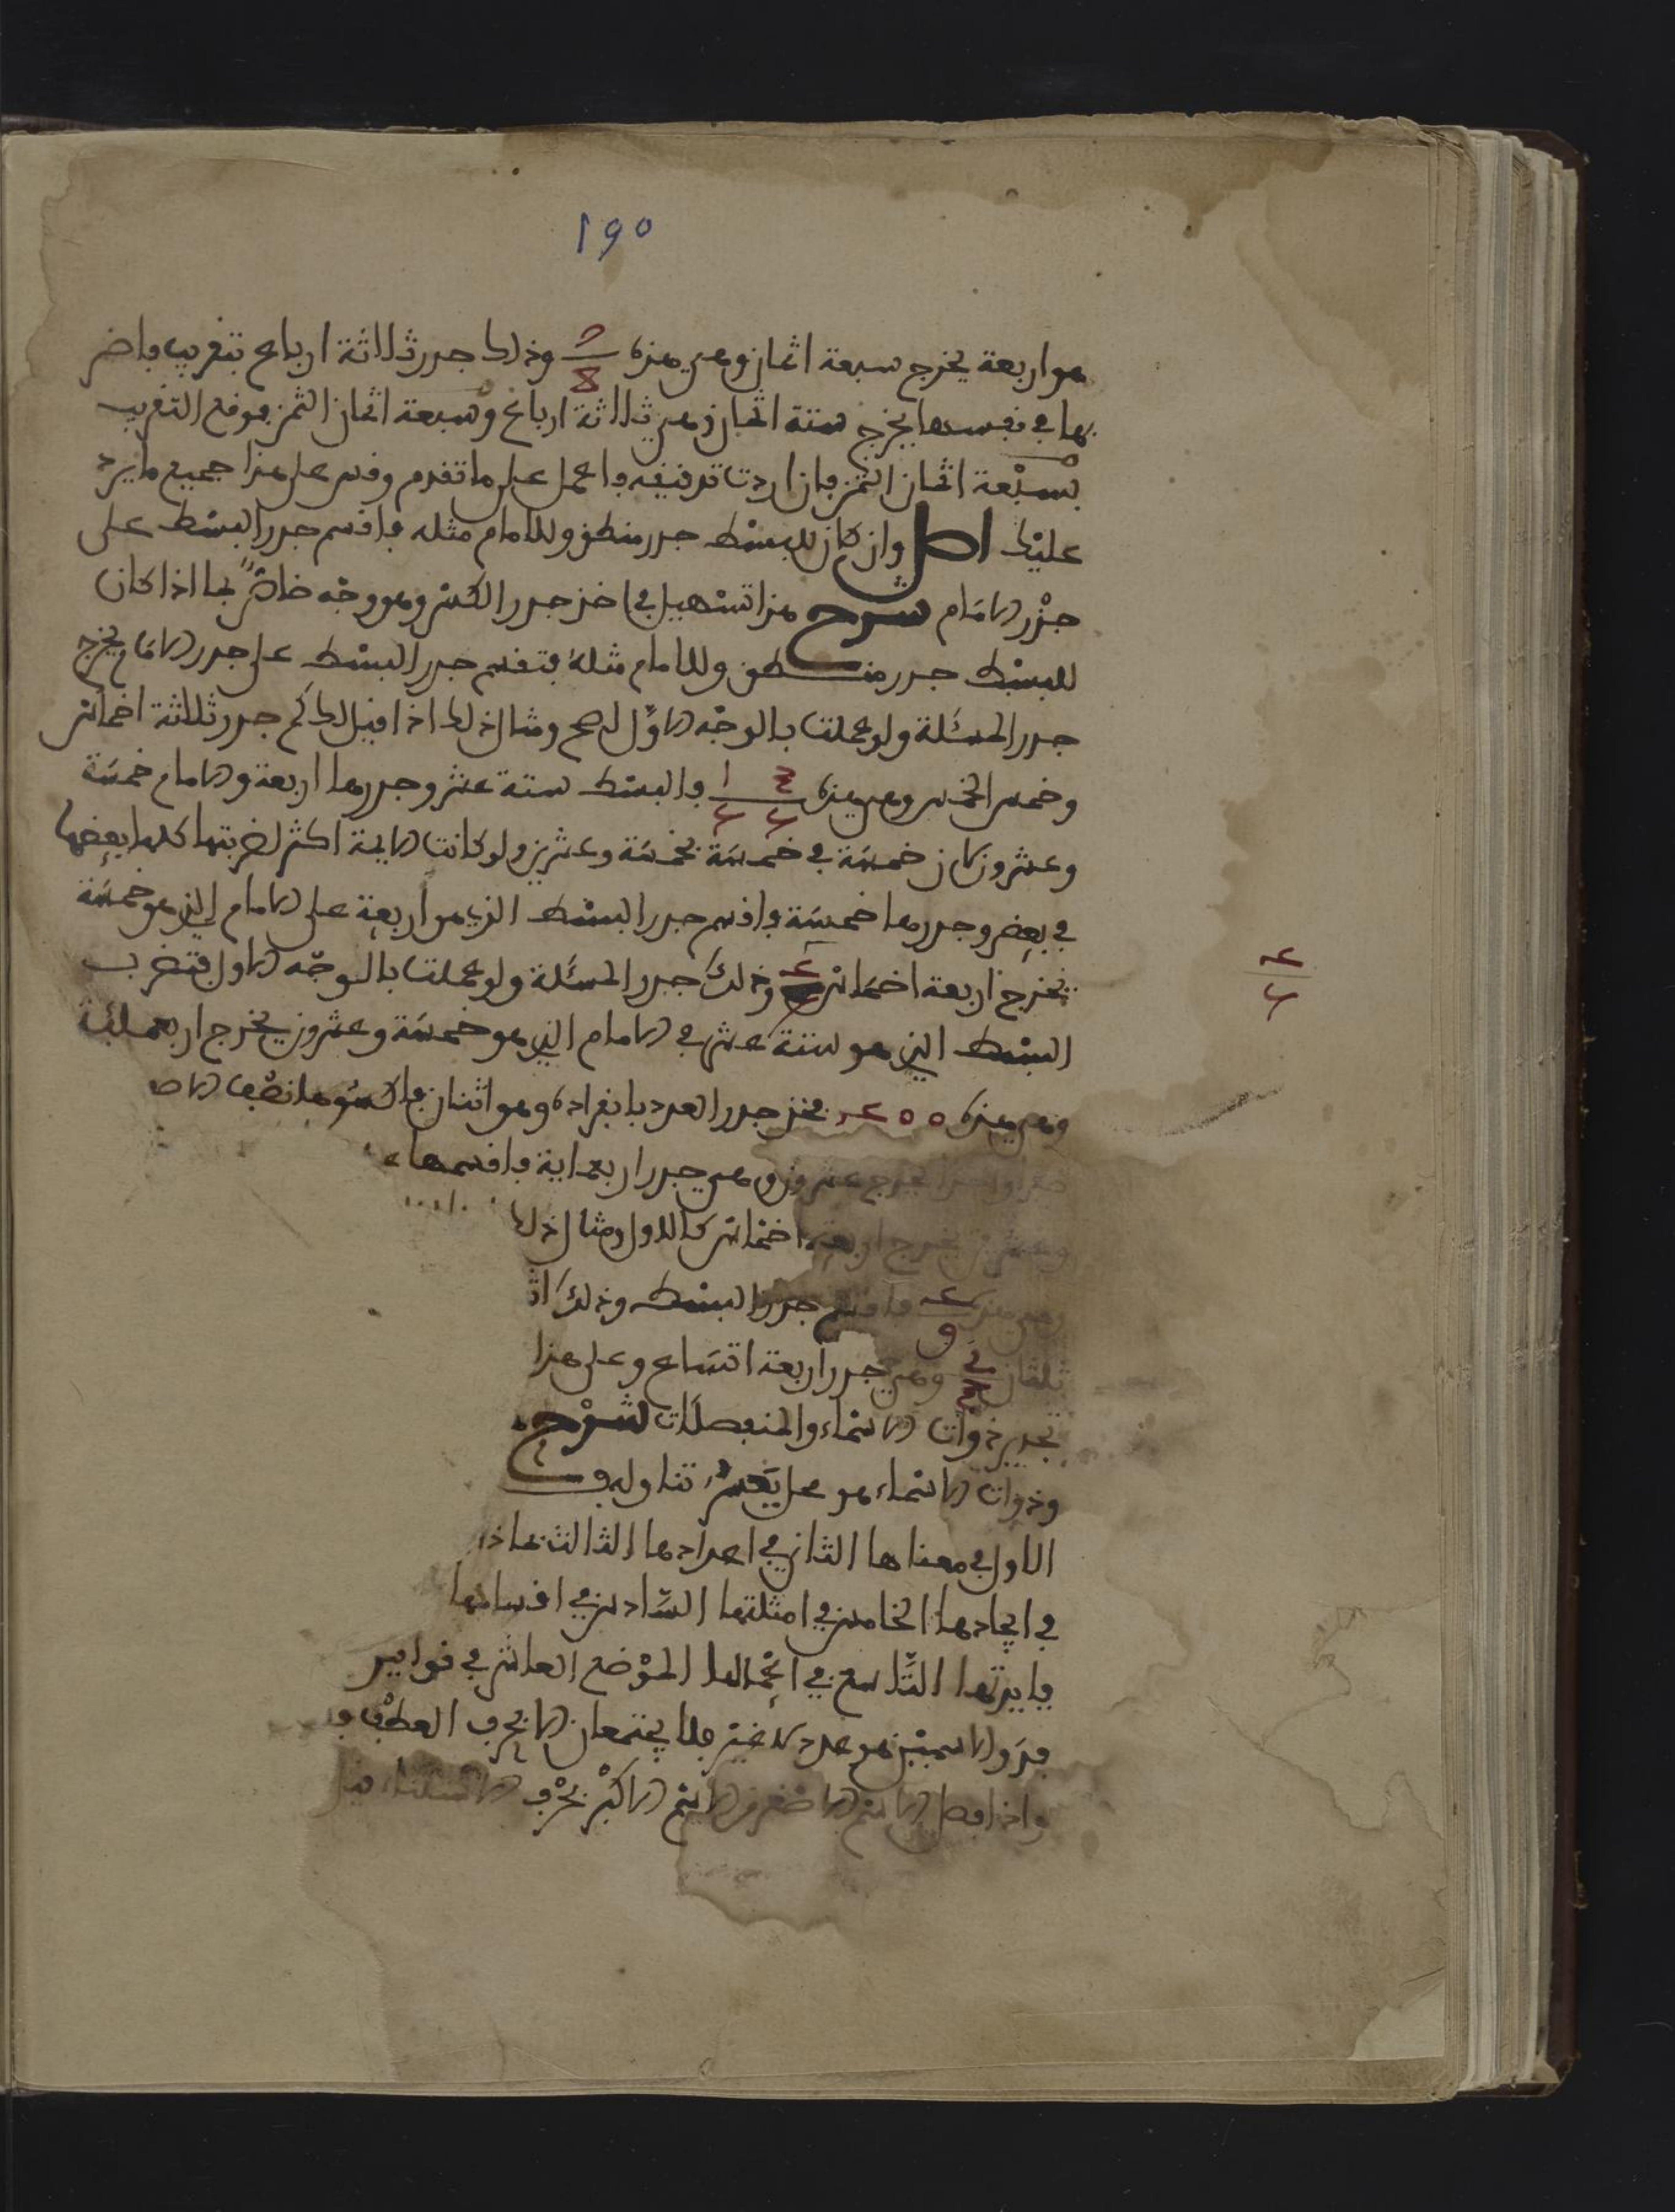 ١٩٥
هو اربعة يخرج سبعة اثمان وهي هذه ٧/٨ وذلك جذر ثلاثة ارباع بتقريب فاضر
بها في نفسها يخرج ستة اثمان وهي ثلاثة ارباع وسبعة اثمان الثمن فوقع التقريب
بسبعة اثمان الثمن فان اردت تدقيقه فاعمل على ما تقدم وقس على هذا جميع ما يرد
عليك اصل وان كان للبسط جذر منطق وللامام مثله فاقسم جذر البسط على
جذر الامام شرح هذا تسهيل في اخذ جذر الكسر وهو وجه خاص بما اذا كان
للبسط جذر منطق وللامام مثله فتقسم جذر البسط على جذر الامام يخرج
جذر المسئلة ولو عملت بالوجه الاول لصح ومثال ذلك اذا قيل لك كم جذر ثلاثة اخماس
وخمس الخمس وهي هذه ١ ٣/٥ ٥ فالبسط ستة عشر وجذرها اربعة والامام خمسة
وعشرون لان خمسة في خمسة بخمسة وعشرين ولو كانت الايمة اكثر لضربتها كلها بعضها
في بعض وجذرها خمسة فاقسم جذر البسط الذي هو اربعة على الامام الذي هو خمسة
يخرج اربعة اخماس ٤ وذلك جذر المسئلة ولو عملت بالوجه الاول فتضرب
٤/٥
البسط الذي هو ستة عشر في الامام الذي هو خمسة وعشرون يخرج اربعمائة
وهي هذه ٤٠٠ فخذ جذر العدد بانفراده وهو اثنان فاكسوها نصف الا
يخرج عشرون وهي جذر اربعماية فاقسمها
وعشرين يخرج اربعة اخماس كالاول ومثال ذلك
وهي هذه ٤/٩ فاقسم جذر البسط وذلك اث
ثلثان ٢/٣ وهي جذر اربعة اتساع وعلى هذا
تجذير ذوات الاسماء والمنفصلات شرح
وذوات الاسماء هو
الاول في معناها الثاني في اعدادها الثالث
في ايجادها الخامس في امثلتها السادس في اقسامها
فايدتها التاسع في اعمالها الموضع العاشر في
فذو الاسمين هو عدد فلا يجتمعان الا بحرف العطف
واذا فصل الاسم الاصغر من الاسم الاكبر بحرف الاستثناء